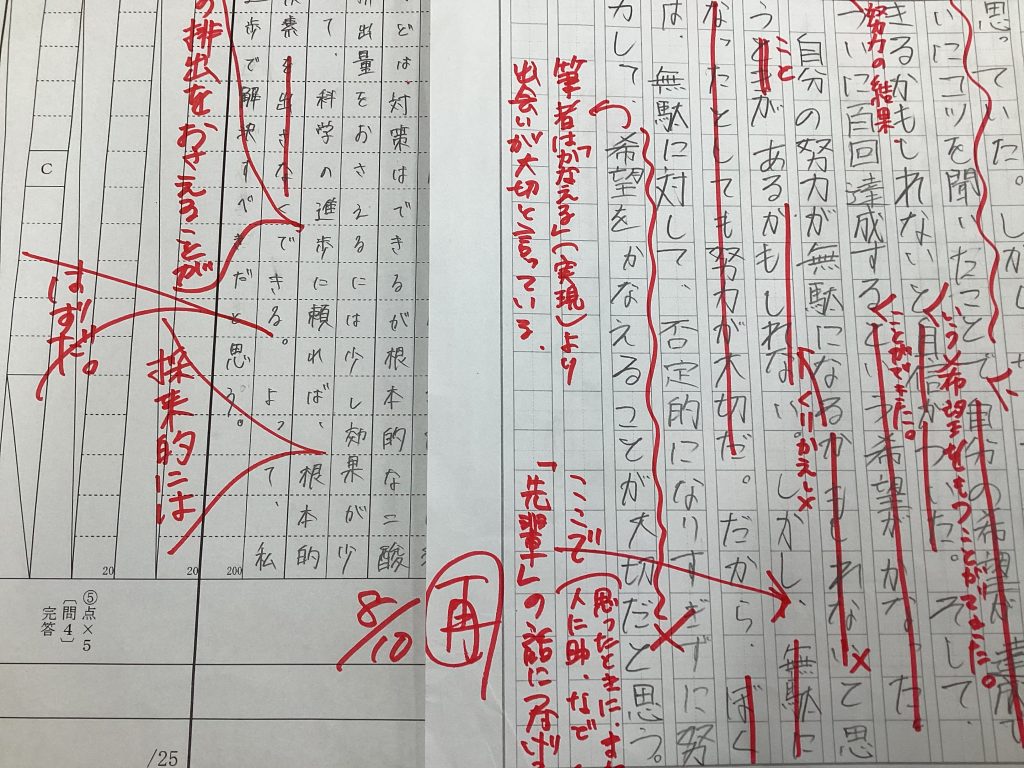 思っていた。しかし
いにコツを聞いたことで自分の希望が達成で
きるかもしれないと自信がついた。そして、
いう希望をもつことができた。
ついに百回達成するという希望がかなった
努力の結果、
ことができた。
自分の努力が無駄になるかもしれないと思
くりかえし×
うときがあるかもしれない。しかし、無駄に
こと
なったとしても努力が大切だ。だから、ぼく
は、無駄に対して、否定的になりすぎずに努
力して、希望をかなえることが大切だと思う。
筆者は「かなえる」(実現)より
出会いが大切と言っている。
ここで
思ったときに、
人に助
「先輩」の話につなげ
再
どは、対策はできるが根本的な二酸
出量をおさえるには少し効果が少
て、科学の進歩に頼れば、根本的
素を出さなくできる。よって、私
歩で解決すべきだと思う。
の排出をおさえることが
将来的には
はずだ。
8/10
C
200
20
20
⑤点×5
〔問4〕
完答
/25